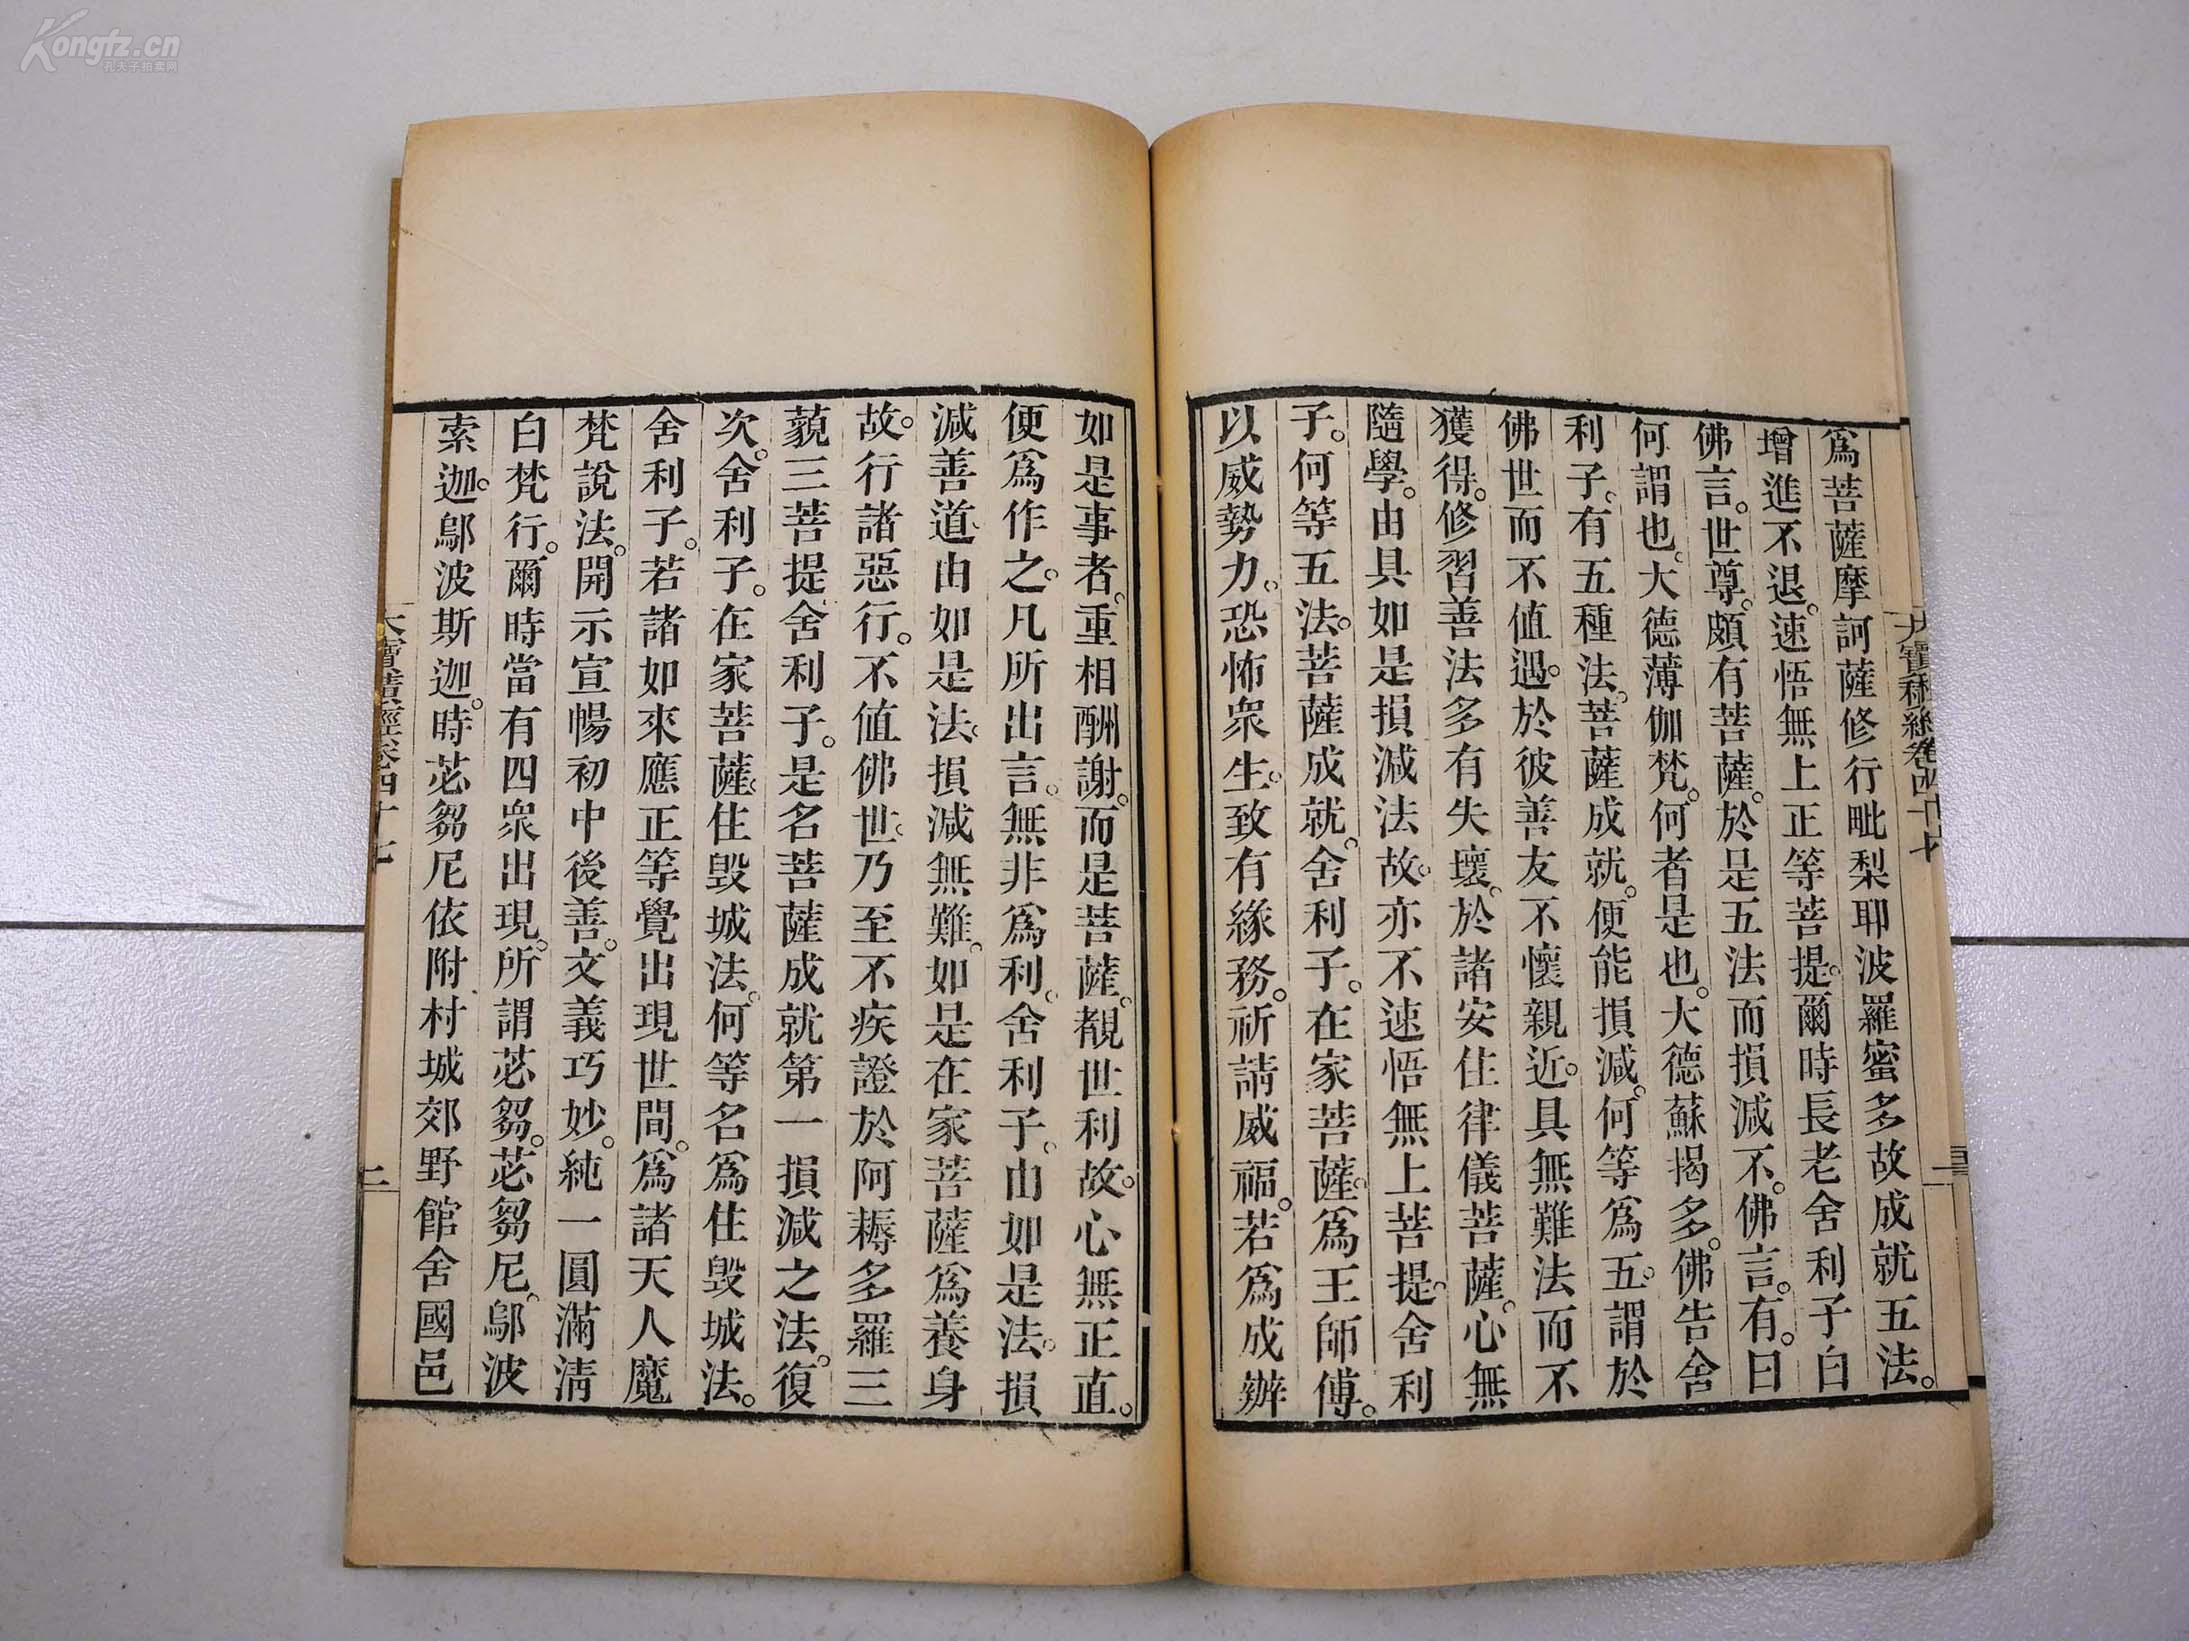 Kongfz.cn
孔夫子拍卖网
爲菩薩摩訶薩修行毗梨耶波羅蜜多故成就五法。
增進不退。速悟無上正等菩提。爾時長老舍利子白
佛言。世尊。頗有菩薩。於是五法而損減不。佛言。有。曰
何謂也。大德薄伽梵。何者是也。大德蘇揭多。佛告舍
利子。有五種法。菩薩成就。便能損減。何等爲五。謂於
佛世而不值遇。於彼善友不懷親近。具無難法而不
獲得。修習善法多有失壞。於諸安住律儀菩薩。心無
隨學。由具如是損減法故。亦不速悟無上菩提。舍利
子。何等五法。菩薩成就。舍利子。在家菩薩。爲王師傅。
以威勢力。恐怖衆生。致有緣務。祈請威福。若爲成辦
如是事者。重相酬謝。而是菩薩。覩世利故。心無正直。
便爲作之。凡所出言。無非爲利。舍利子。由如是法。損
減善道。由如是法。損減無難。如是在家菩薩爲養身
故。行諸惡行。不值佛世。乃至不疾證於阿耨多羅三
藐三菩提。舍利子。是名菩薩成就第一損減之法。復
次。舍利子。在家菩薩。住毀城法。何等名爲住毀城法。
舍利子。若諸如來應正等覺出現世間。爲諸天人魔
梵說法。開示宣暢初中後善。文義巧妙。純一圓滿清
白梵行。爾時當有四衆出現。所謂苾芻。苾芻尼。鄔波
索迦。鄔波斯迦。時苾芻尼依附村城郊野館舍國邑
大寶積經卷四十七
二